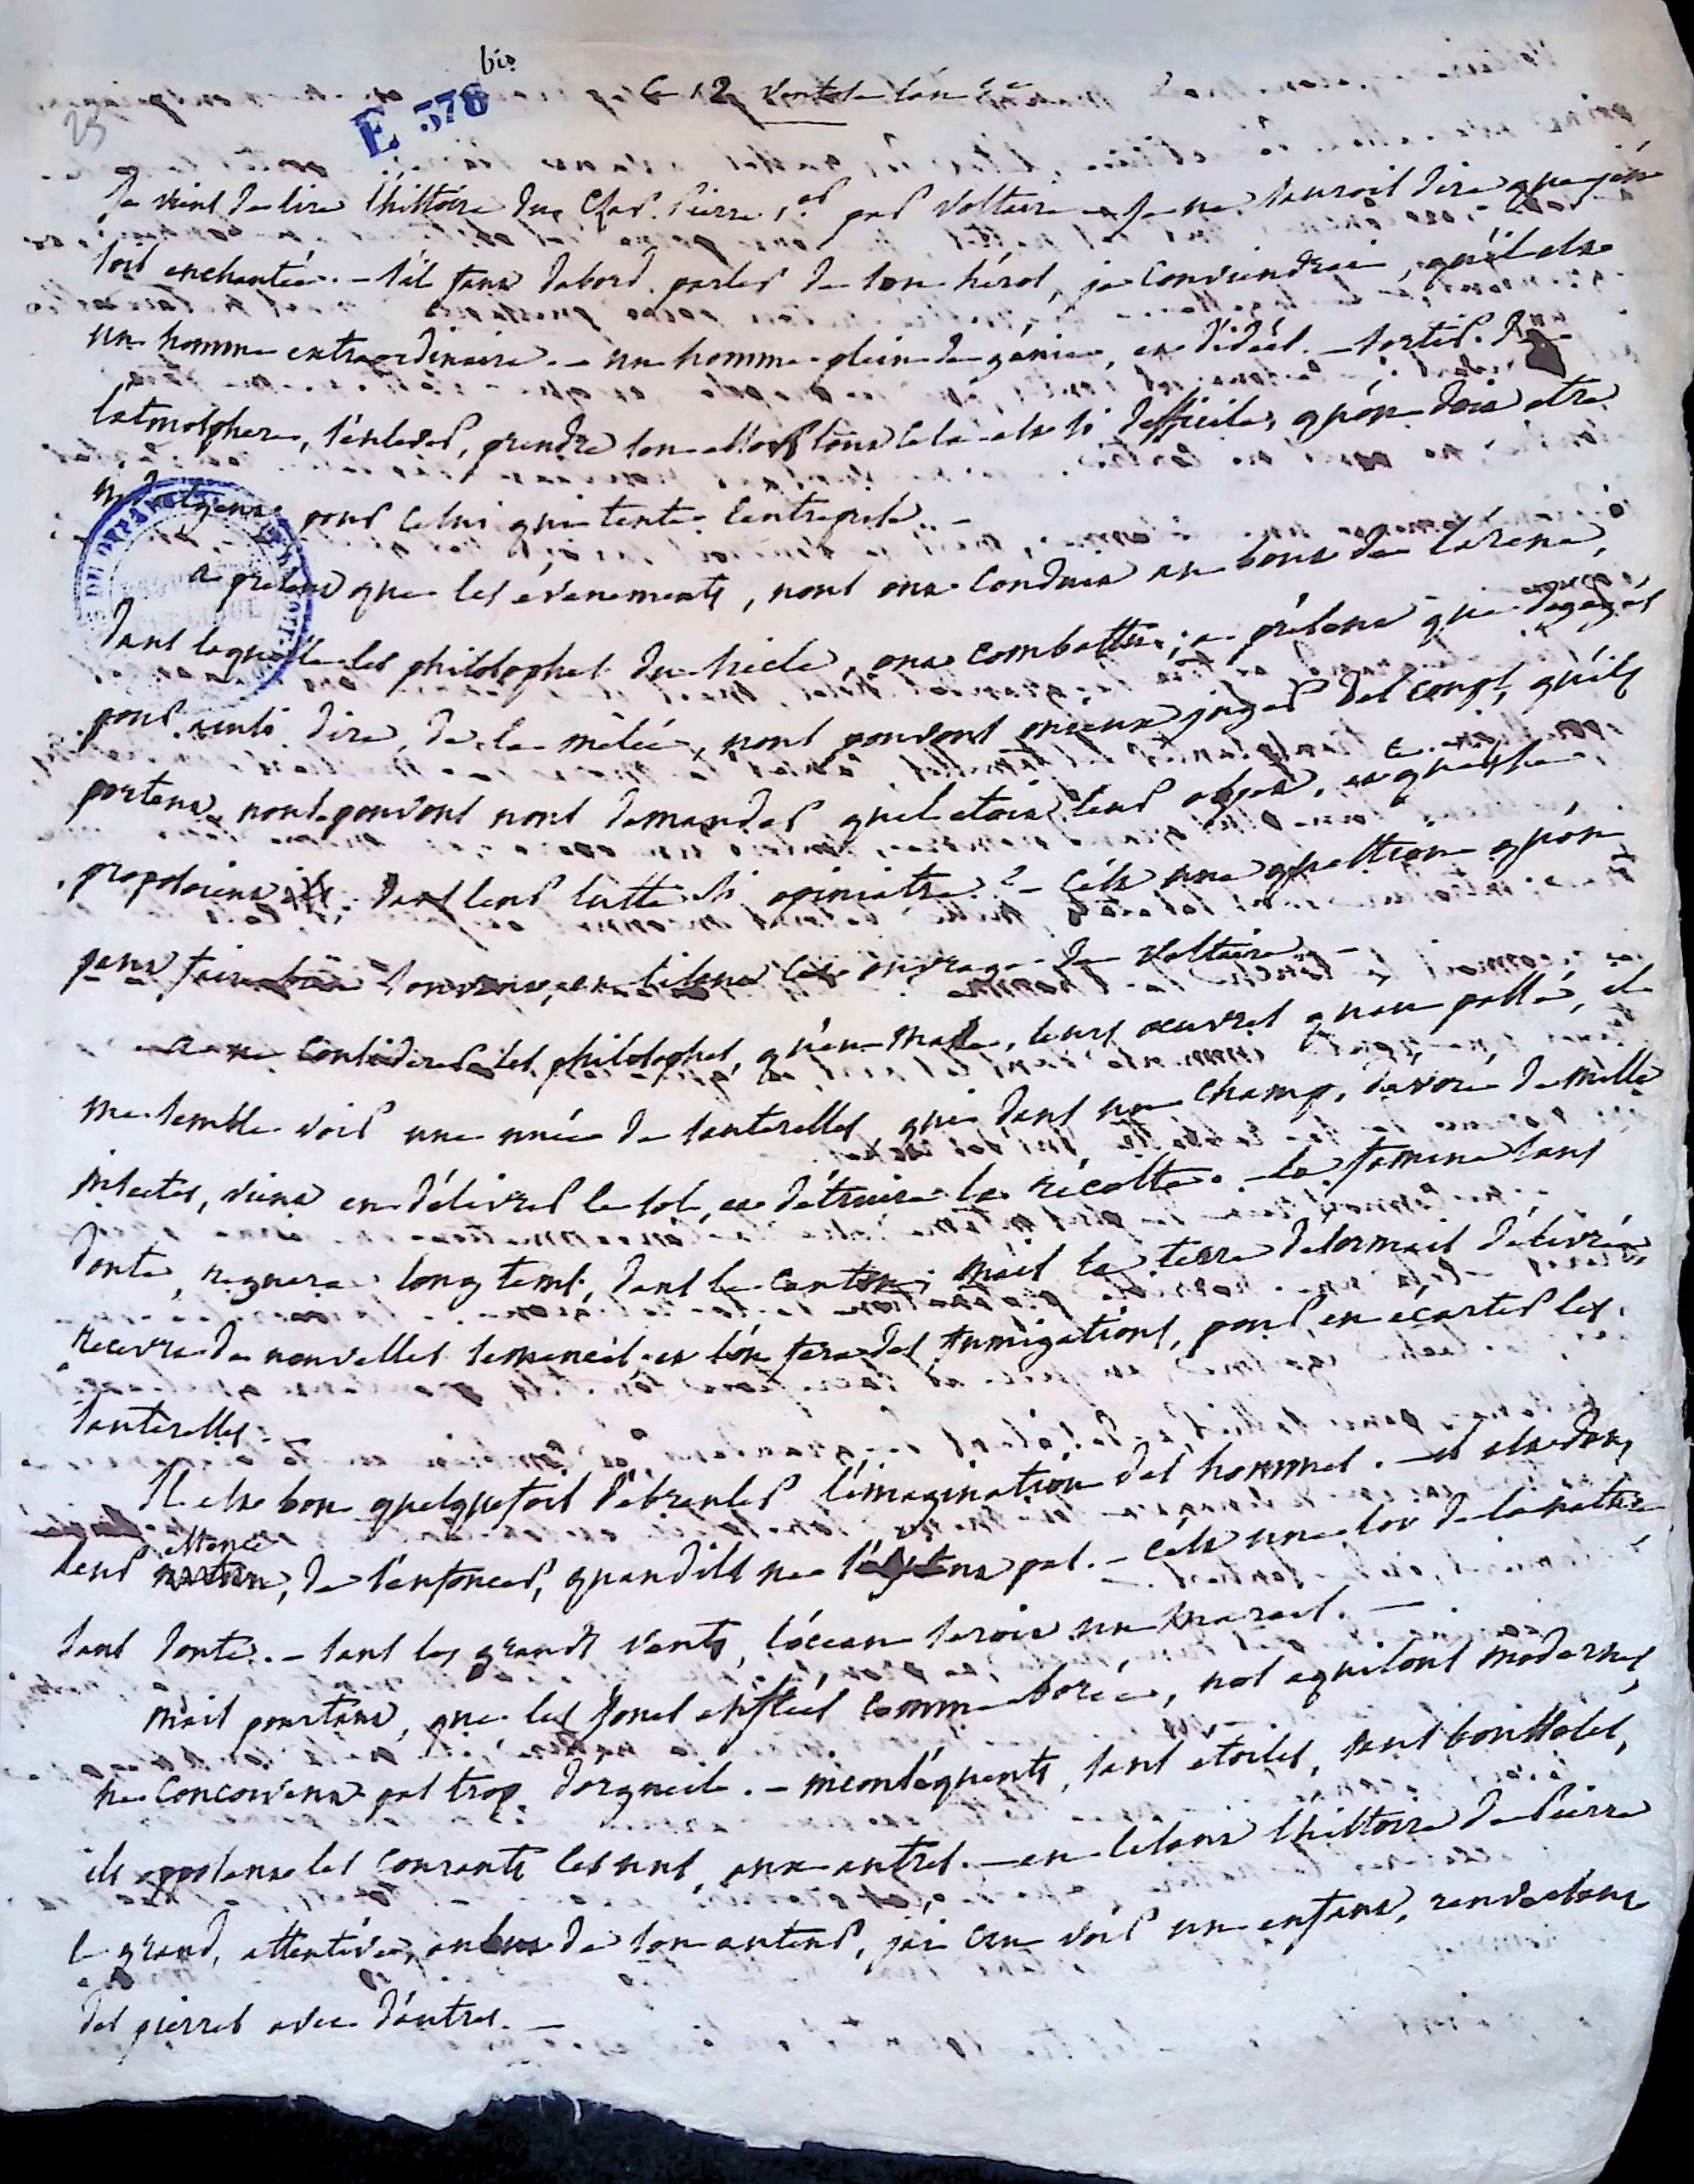 bis
E 378
25
le 12 Ventose l'an
Je viens de lire l'histoire du Czar Pierre 1er par Voltaire je ne saurois dire que j'en
sois enchantée. - s'il faut dabord parler de son héros, je conviendrai, qu'il est
un homme extraordinaire. - un homme plein de génie, et d'idées. - sortir de
l'atmosphere, s'enlever, prendre son essor tout cela est si difficile, qu'on doit etre
indulgent pour celui qui tente l'entreprise. -
a présent que les évenements, nous ont conduit au bout de l'arene,
dans laquelle les philosophes du siecle, ont combattu; a présent que dégagés
pour ainsi dire, de la mêlée, nous pouvons mieux juger des coups, qu'ils
portent, nous pouvons nous demander quel etoit leur objet, et ce qu'ils se
proposoient dans leur lutte si opiniatre? - c'est une question qu'on
peut faire souvent, en lisant cet ouvrage de Voltaire -
a ne considerer les philosophes, qu'en masse, leurs oeuvres qu'au passé, il
me semble voir une nuée de sauterelles, qui dans un champ, dévoré de mille
insectes, vient en délivrer le sol, et détruire la récolte. - la famine sans
doute, regnera long tems, dans le canton; mais la terre desormais délivrée
recevra de nouvelles semences et l'on fera des fumigations, pour en ecarter les
sauterelles. -
Il est bon quelquefois d'ébranler l'imagination des hommes. - il est dans
essence
leur, de s'enfoncer, quand ils ne s'agitent pas. - c'est une loi de la nature
sans doute. - sans les grands vents, l'océan seroit un marais. -
mais pourtant, que les joues enflées comme borée, nos aquilons modernes
ne conçoivent pas trop d'orgueil. - inconséquents, sans etoiles, sans boussoles,
ils opposent les courants les uns, aux autres. - en lisant l'histoire de Pierre
le grand, attentive au but de son auteur, j'ai cru voir un enfant, renversant
des pierres avec d'autres. -